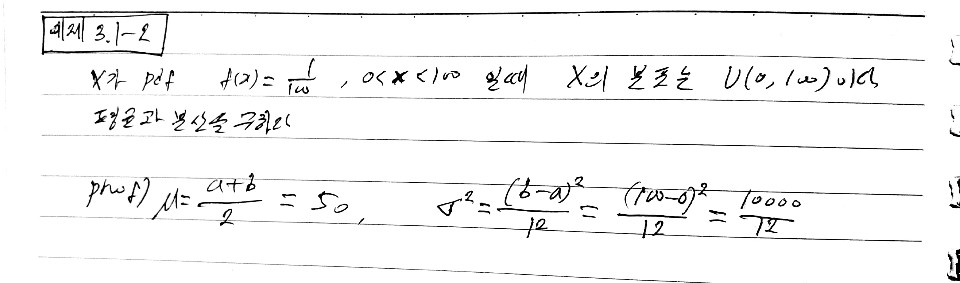 예제 3.1-2
X가 pdf f(x) = 1/100 , 0<x<100 일때 X의 분포는 U(0, 100)이다
평균과 분산을 구하라
proof) μ = a+b/2 = 50, σ² = (b-a)²/12 = (100-0)²/12 = 10000/12